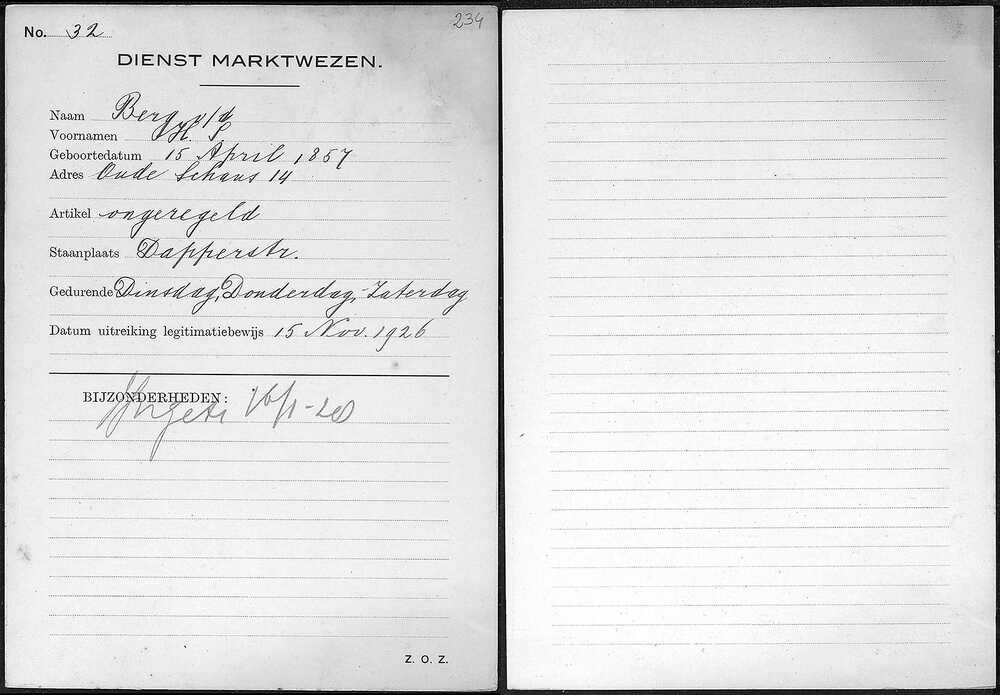 234
No. 32
DIENST MARKTWEZEN.
Naam Berg v/d
Voornamen H. S
Geboortedatum 15 April 1857
Adres Oude Schans 14
Artikel ongeregeld
Staanplaats Dapperstr.
Gedurende Dinsdag, Donderdag, Zaterdag
Datum uitreiking legitimatiebewijs 15 Nov. 1926
BIJZONDERHEDEN:
16/1-28
Z. O. Z.